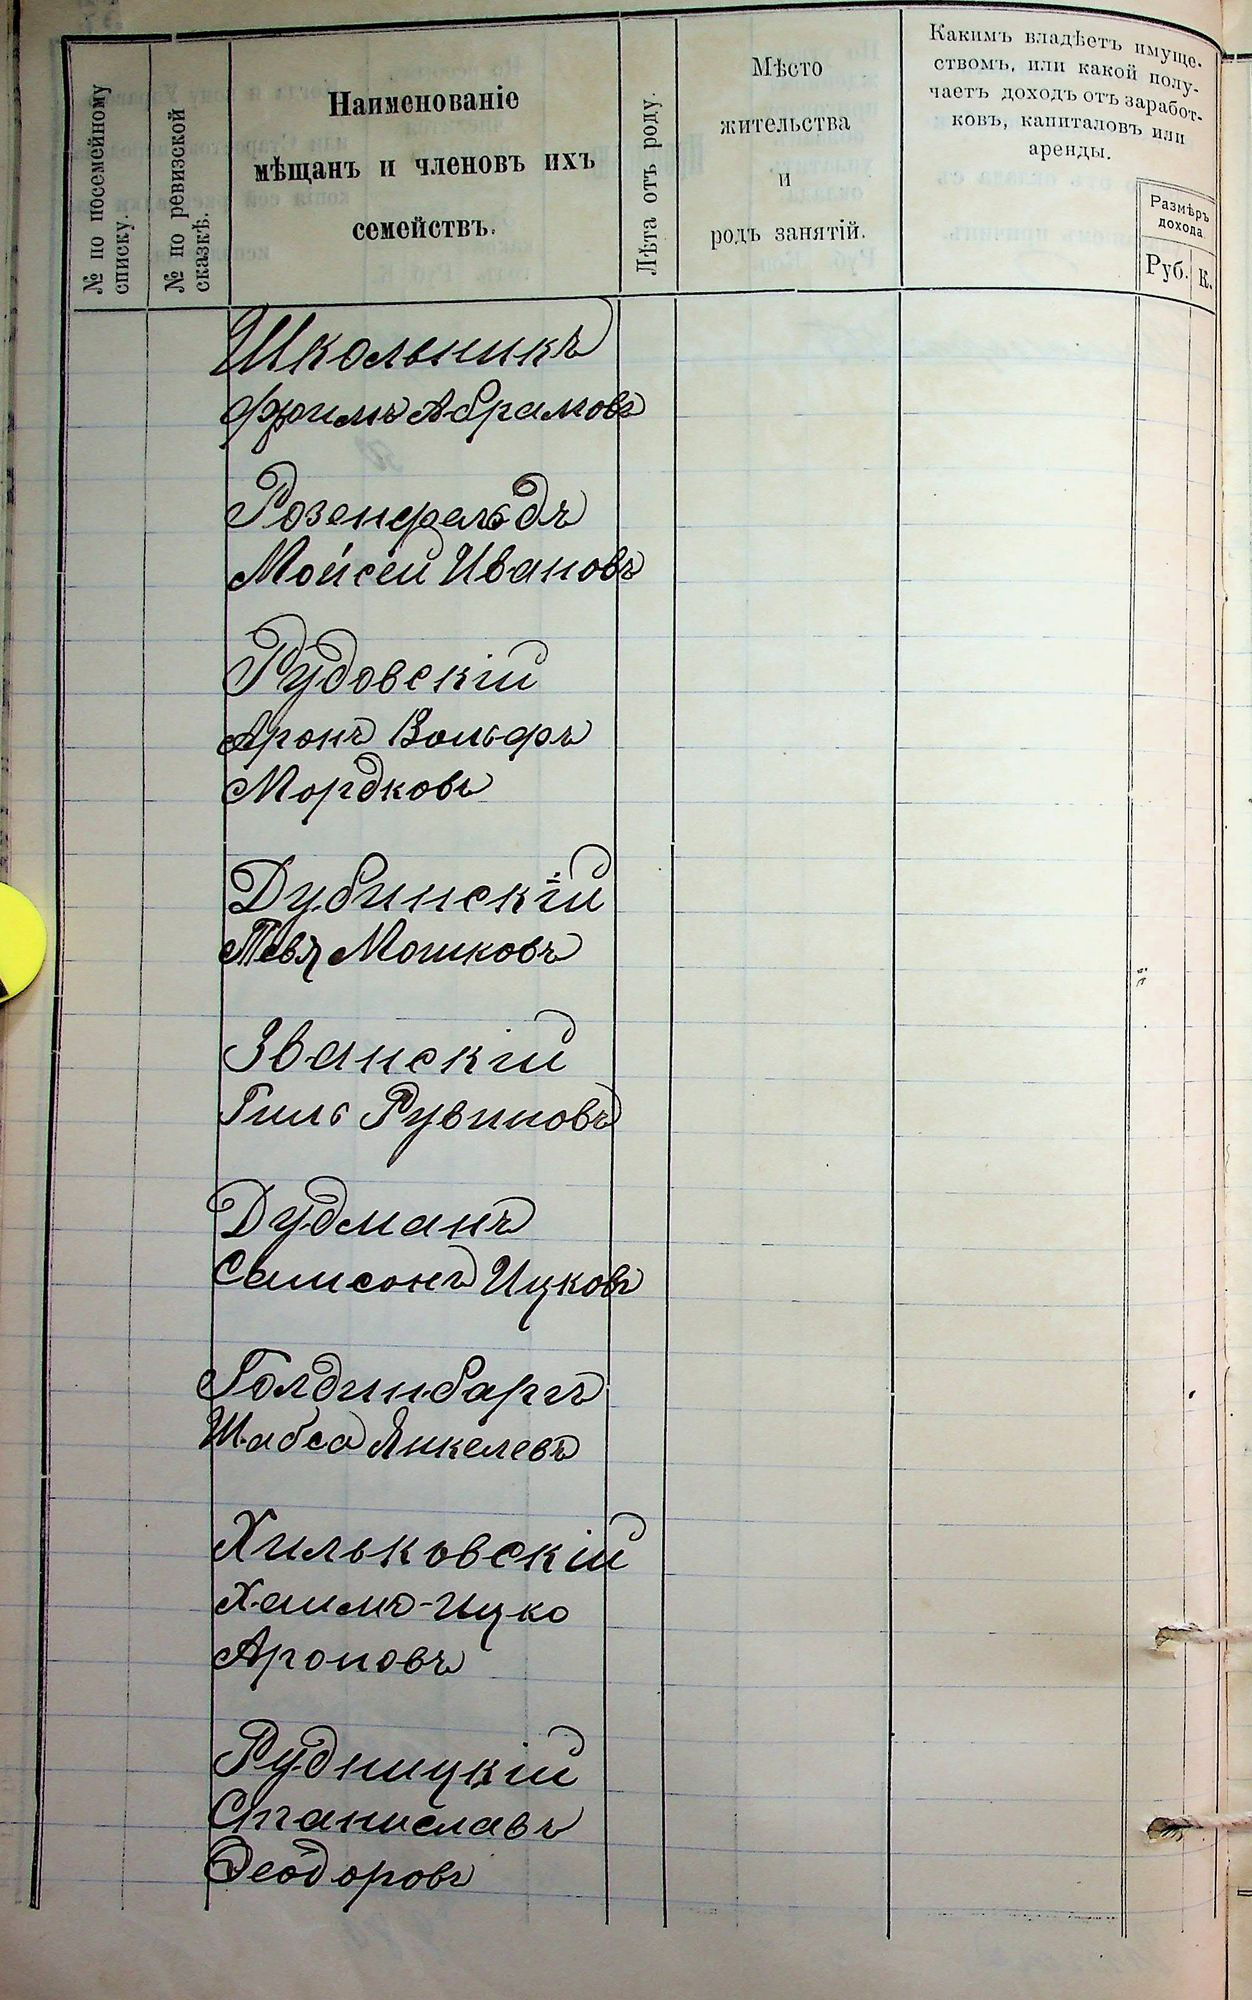 № по посемейному
списку.
№ по ревизской
сказкѣ.
Наименованіе
мѣщанъ и членовъ ихъ
семействъ.
Лѣта отъ роду.
Мѣсто
жительства
и
родъ занятій.
Какимъ владѣетъ имуще-
ствомъ, или какой полу-
чаетъ доходъ отъ заработ-
ковъ, капиталовъ или
аренды.
Размѣръ
дохода.
Руб.
К.
Школьникъ
Фроимъ Абрамовъ
Розенфельдъ
Мойсей Ивановъ
Рудовскій
Аронъ Вольфъ
Мордковъ
Дубинскій
Тевя Мошковъ
Званскій
Гиль Рувиновъ
Дудманъ
Самсонъ Ицковъ
Голдинбаргъ
Шабса Янкелевъ
Хильковскій
Хаимъ-Ицко
Ароновъ
Рудницкій
Станиславъ
Ѳеодоровъ